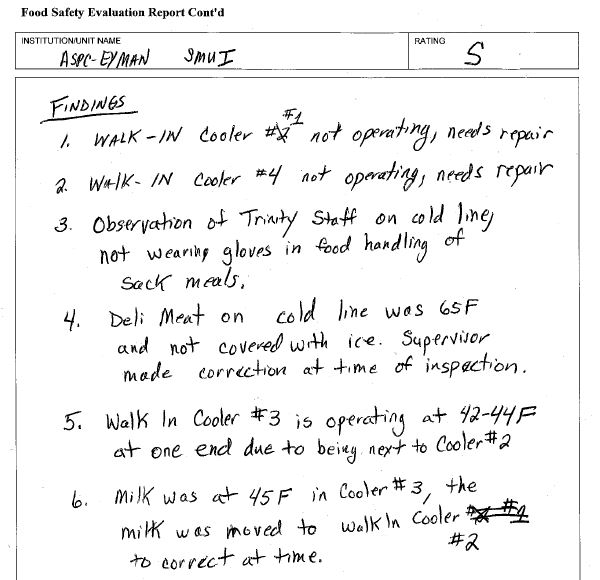 Food Safety Evaluation Report Cont'd
INSTITUTION/UNIT NAME
ASPC-EYMAN SMU I
RATING
S
FINDINGS
1. WALK-IN Cooler #1 not operating, needs repair
2. WALK-IN Cooler #4 not operating, needs repair
3. Observation of Trinity Staff on cold line,
not wearing gloves in food handling of
Sack meals.
4. Deli Meat on cold line was 65F
and not covered with ice. Supervisor
made correction at time of inspection.
5. Walk In Cooler #3 is operating at 42-44F
at one end due to being next to Cooler #2
6. Milk was at 45F in Cooler #3, the
milk was moved to walk In Cooler
#2
to correct at time.